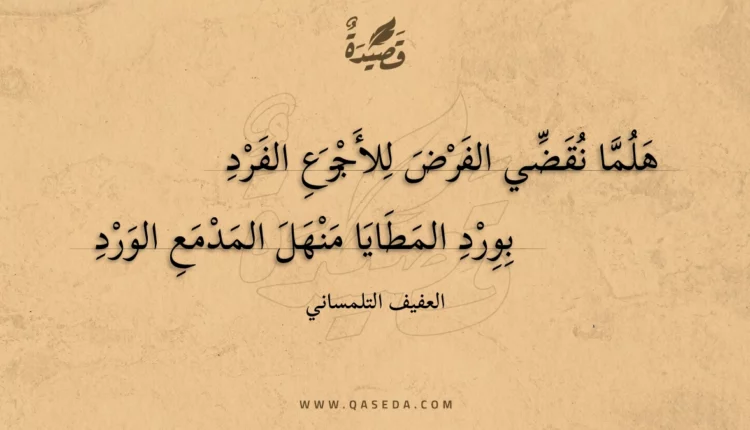 قَصِيْدَةٌ
هَلُمَّا نُقَضِّي الفَرْضَ لِلأَجْوَعِ الفَرْدِ
بِوِرْدِ المَطَايَا مَنْهَلَ المَدْمَعِ الوَرْدِ
العفيف التلمساني
WWW.QASEDA.COM